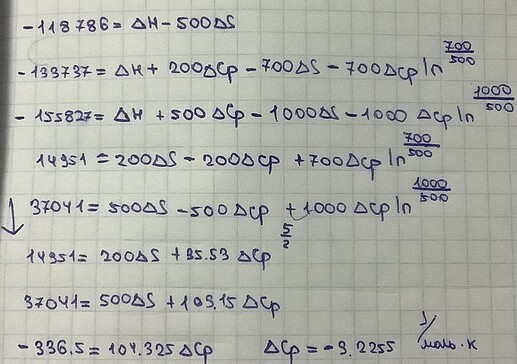 -118786 = ΔH - 500ΔS
-133737 = ΔH + 200ΔCp - 700ΔS - 700ΔCp ln 700/500
-155827 = ΔH + 500ΔCp - 1000ΔS - 1000ΔCp ln 1000/500
14951 = 200ΔS - 200ΔCp + 700ΔCp ln 700/500
↓ 37041 = 500ΔS - 500ΔCp + 1000ΔCp ln 1000/500
5/2
14951 = 200ΔS + 35.53 ΔCp
37041 = 500ΔS + 193.15 ΔCp
-336.5 = 104.325 ΔCp ΔCp = -3.2255 J/моль·К